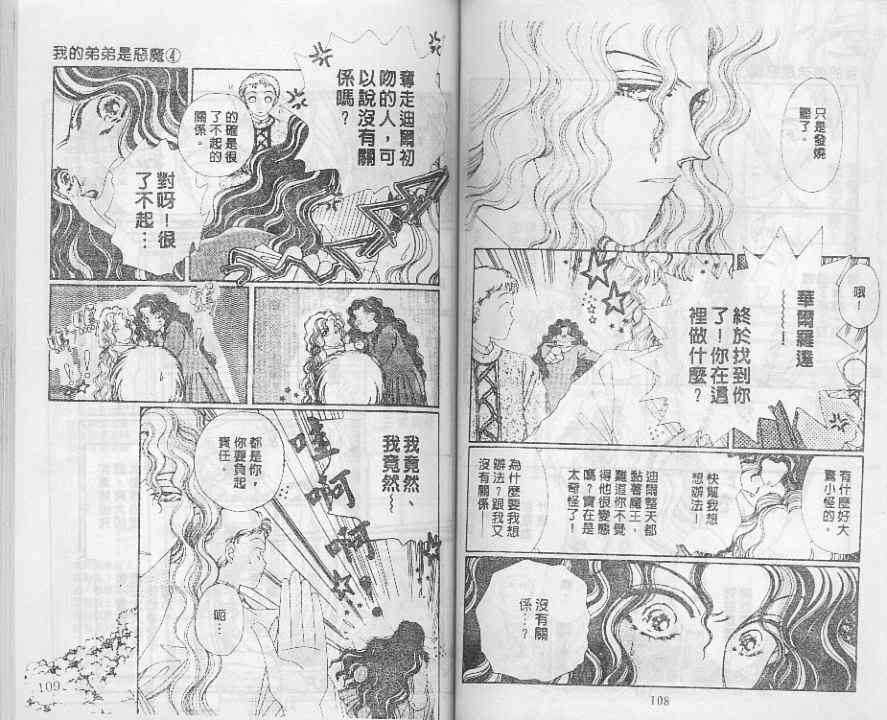 只是發燒
罷了。
哦！
華爾羅達
～～～～！
終於找到你
了！你在這
裡做什麼？
有什麼好大
驚小怪的。
快幫我想
想辦法！
迪爾整天都
黏著魔王、
難道你不覺
得他很變態
嗎？實在是
太奇怪了！
為什麼要我想
辦法？跟我又
沒有關係──
沒有關
係…？
108
我的弟弟是惡魔④
奪走迪爾初
吻的人，可
以說沒有關
係嗎？
的確是很
了不起的
關係。
對呀！很
了不起…
我竟然、
我竟然～
哇啊啊
都是你，
你要負起
責任。
呃…
109